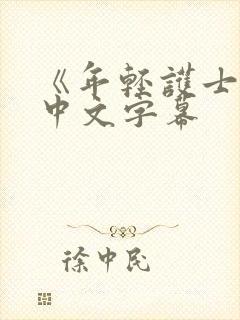 《年轻護士
中文字幕
徐中民